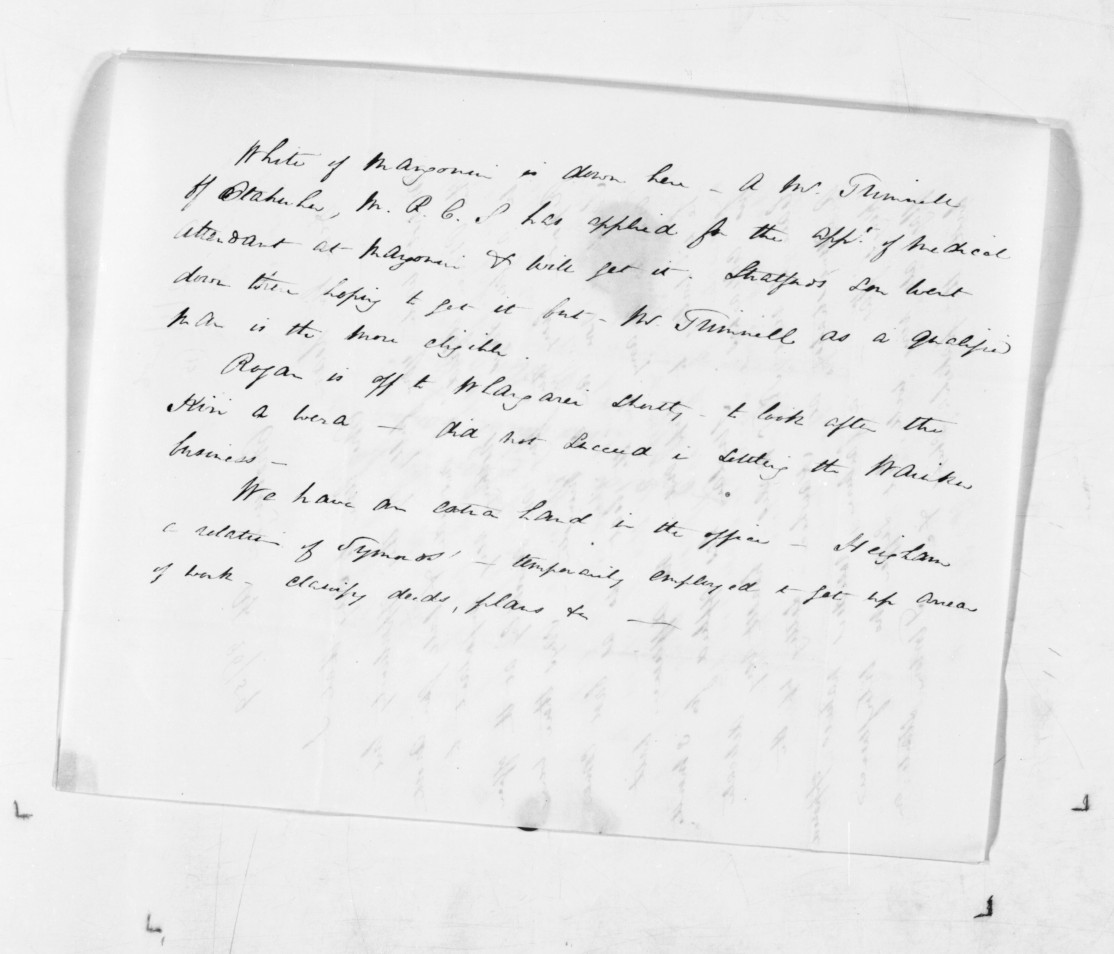 White of Mangonui is down here - A Mr. Trimnell
of Otahuhu, M. R. C. S has applied for the appt. of Medical
attendant at Mangonui & will get it. Stratfords son went
down there hoping to get it but - Mr Trimnell as a qualified
man is the more eligible.
Rogan is off to Whangarei shortly - to look after the
a wera - did not succeed in settling the
business -
We have an extra hand in the office - Heigham
a relation of Symonds' - temporarily employed to get up arrears
of work - classify deeds, plans &c —